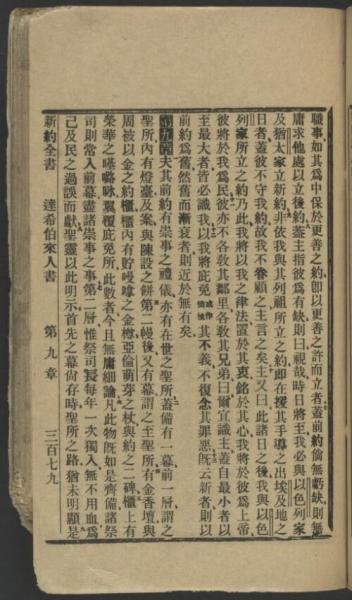 職事如其爲中保於更善之約卽以更善之許而立者蓋前約倘無虧缺則無
庸求他處以立後約蓋主指彼爲有缺則曰視哉時日將至我必與以色列家
及猶太家立新約非依我與其列祖所立之約卽在援其手導之出埃及地之
日者蓋彼不守我約故我不眷顧之主言之矣主又曰此諸日之後我與以色
列家所立之約乃此我將以我之律法置於其衷銘於其心我將於彼爲上帝
彼將於我爲民彼亦不各敎其鄰里各敎其兄弟曰爾宜識主蓋自最小者以
至最大者皆必識我以我將庇免其不義不復念其罪惡旣云新者則以
前約爲舊然舊而漸衰者則近於無有矣
第九章 夫其前約有崇事之禮儀亦有在世之聖所蓋備有一幕前一層謂之
聖所內有燈臺及案與陳設之餅第二幔後又有幕謂之至聖所有金香壇與
周被以金之約櫃櫃內有貯嗎嗱之金樽亞倫萌芽之杖與約之二碑櫃上有
榮華之𠼻𡀔㕵翼覆庇免所此數者今且無庸細論凡此物旣如是齊備諸祭
司則常入前幕盡諸崇事之事第二層惟祭司長每年一次獨入無不用血爲
己及民之過誤而獻聖靈以此明示首先之幕尙存時聖所之路猶未明顯是
新約全書 達希伯來人書 第九章 三百七九